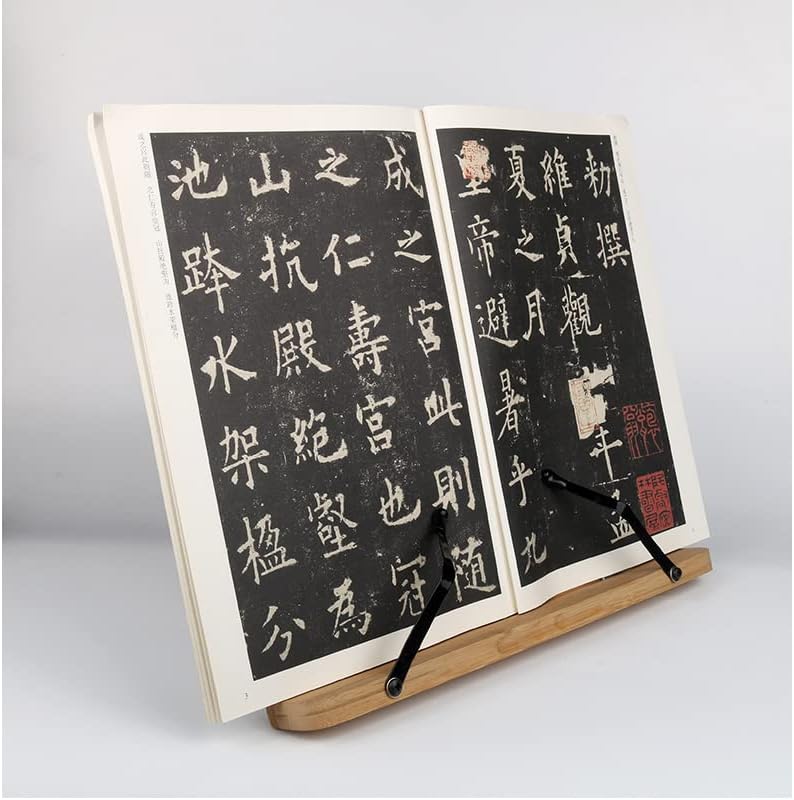 勅撰
維貞觀年孟
夏之月
帝避暑乎九
成之宮此則随
之仁壽宮也冠
山抗殿絶壑為
池跨水架楹分
3